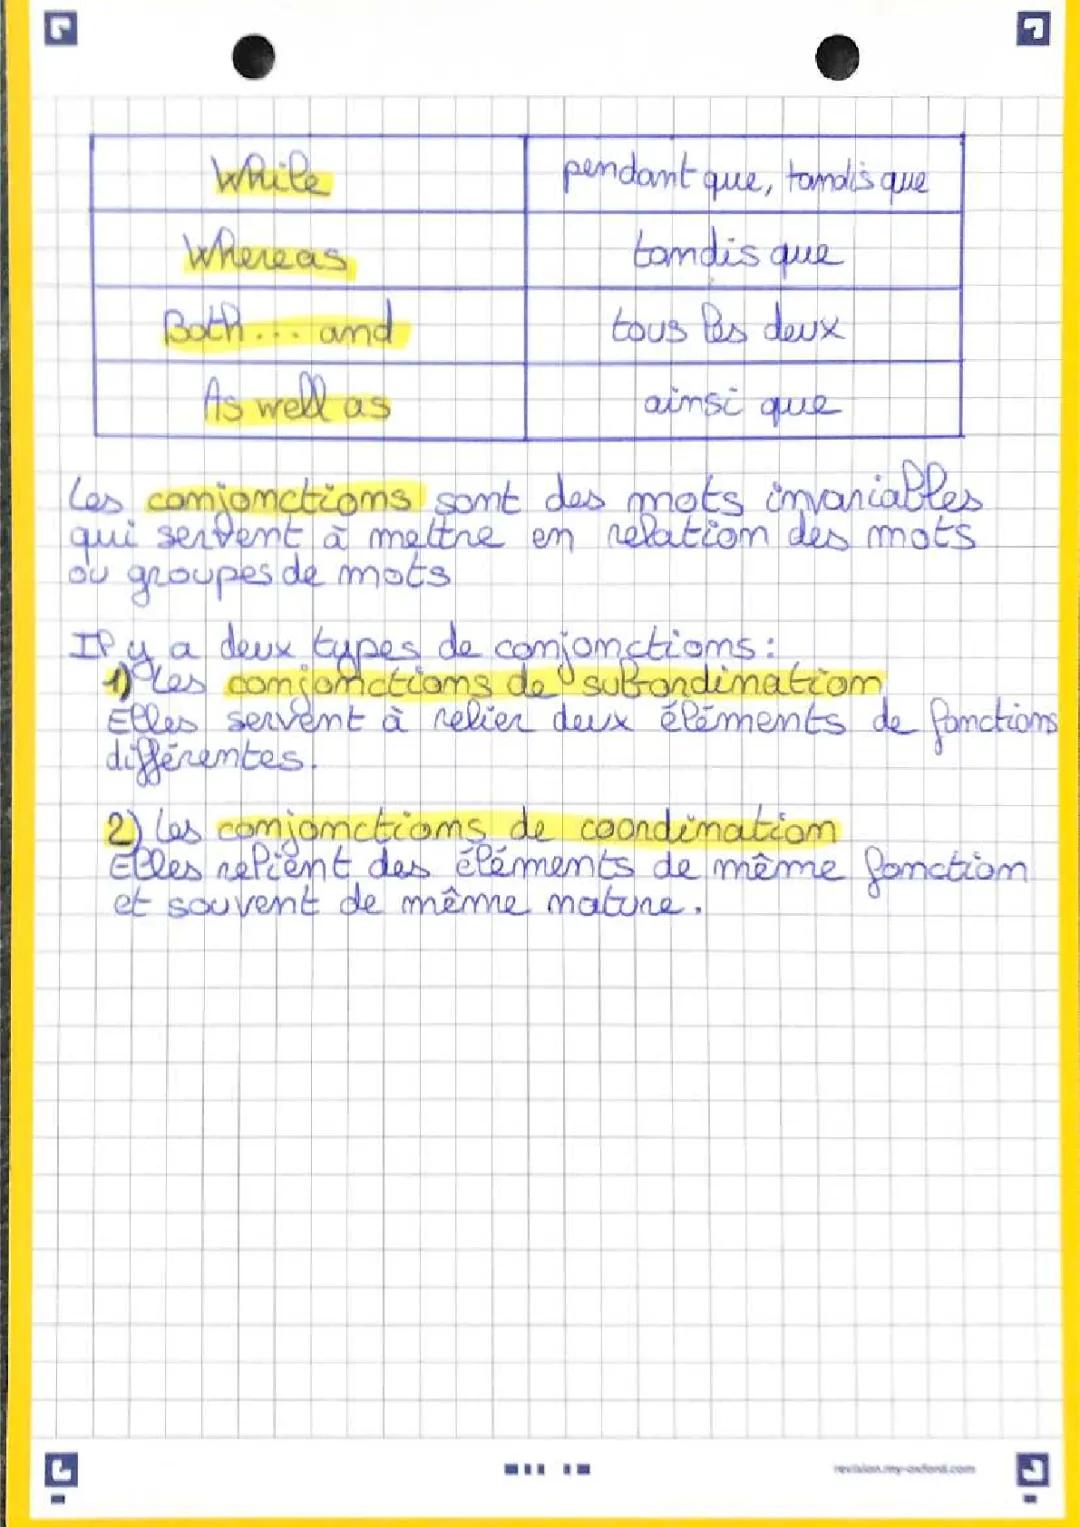 While pendant que, tandis que
Whereas tandis que
Both... and tous les deux
As well as ainsi que
Les conjonctions sont des mots invariables
qui servent à mettre en relation des mots
ou groupes de mots
Il y a deux types de conjonctions :
1) Les conjonctions de subordination
Elles servent à relier deux éléments de fonctions
différentes.
2) Les conjonctions de coordination
Elles relient des éléments de même fonction
et souvent de même nature.
revision.my-oxford.com